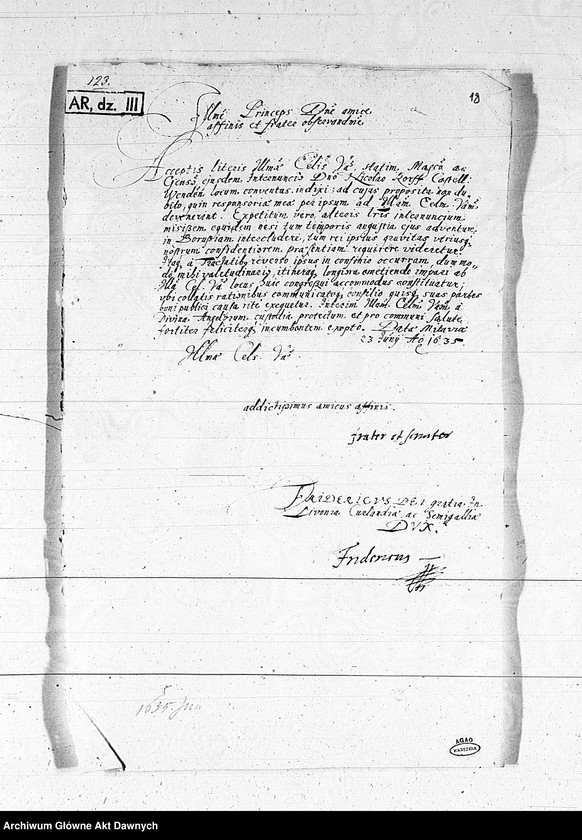 123.
AR, dz. III
18
Illme Princeps Dne amice
affinis et frater observandme
Acceptis literis Illmae Celsis Vae statim Magco ac
Gnoso ejusdem Internuncio Dno Nicolao Korff Castell:
Wenden locum conventus indixi: ad cujus proposita non du-
bito, quin responsoria mea per ipsum ad Illam Celm Vam
devenerint. Expetitum vero, alteris Lris internuncium
misissem equidem nisi tum temporis angustia ejus adventum
in Borussiam intercluderet, tum rei ipsius gravitas utriusq.
nostrum confidentiorem praesentiam requirere videretur.
Itaq a Tractatib. reverso ipsus in confinio occurram dummo-
do mihi valetudinario, itineraq. longiora emetiendo impari ab
Illa Cel. Va locus huic congressui accommodus constituatur;
ubi collatis rationibus communicatoq consilio quisq suas partes
boni publici causa rite exequetur. Interim Illam Celm Vam a
Divina Angelorum custodia protectum et pro communi salute
fortiter feliciterq incumbentem exopto. Data Mitaviae
23 Junij Ao 1635
Illmae Cels. Vae
addictissimus amicus affinis.
frater et servitor
FRIDERICVS DEI gratia In
Livonia Curlandiae ac Semigalliae
DVX.
Fridericus
1635. Jun
5
AGAD
WARSZAWA
Archiwum Główne Akt Dawnych